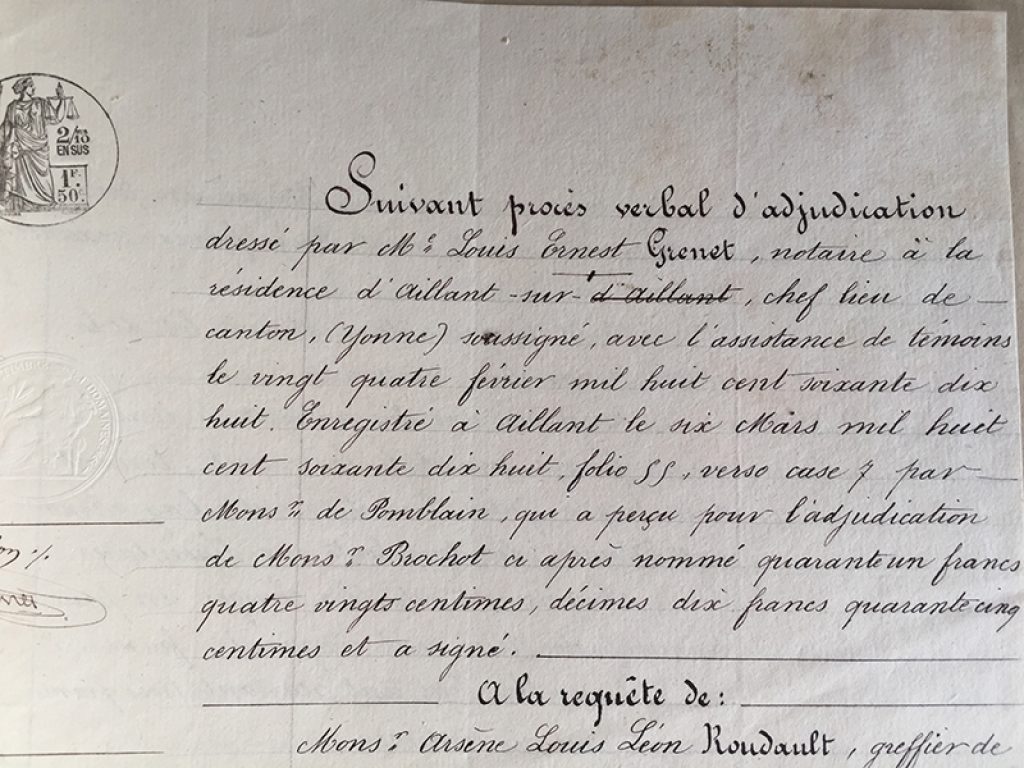 2/10
EN SUS
1F.
50c.
Suivant procès verbal d'adjudication
dressé par Me Louis Ernest Grenet, notaire à la
résidence d'Aillant-sur-d'Aillant, chef lieu de
canton, (Yonne) soussigné, avec l'assistance de témoins
le vingt quatre février mil huit cent soixante dix
huit. Enregistré à Aillant le six Mars mil huit
cent soixante dix huit, folio 55, verso case 7 par
Monsr. de Pomblain, qui a perçu pour l'adjudication
de Monsr Brochot ci après nommé quarante un francs
quatre vingts centimes, décimes dix francs quarante cinq
centimes et a signé.
A la requête de:
Monsr Arsène Louis Léon Roudault, greffier de